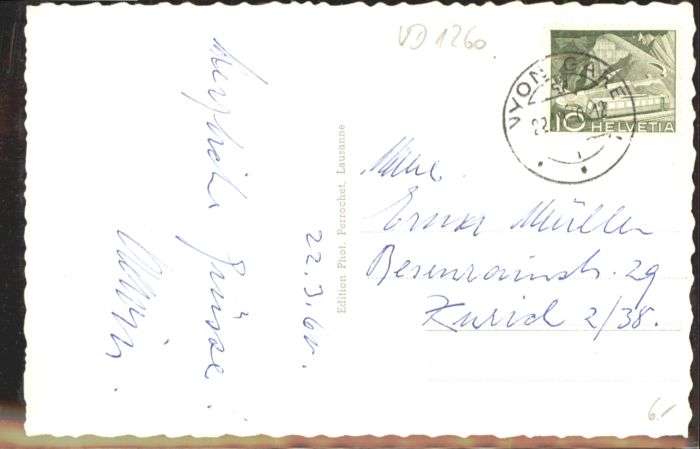 VD 1260
NYON GARE
10 HELVETIA
22.3.60.
Herzliche
Grüsse.
Edition Phot. Perrochet, Lausanne
Erna Müller
Besenrainstr. 29
Zürich 2/38.
6.-